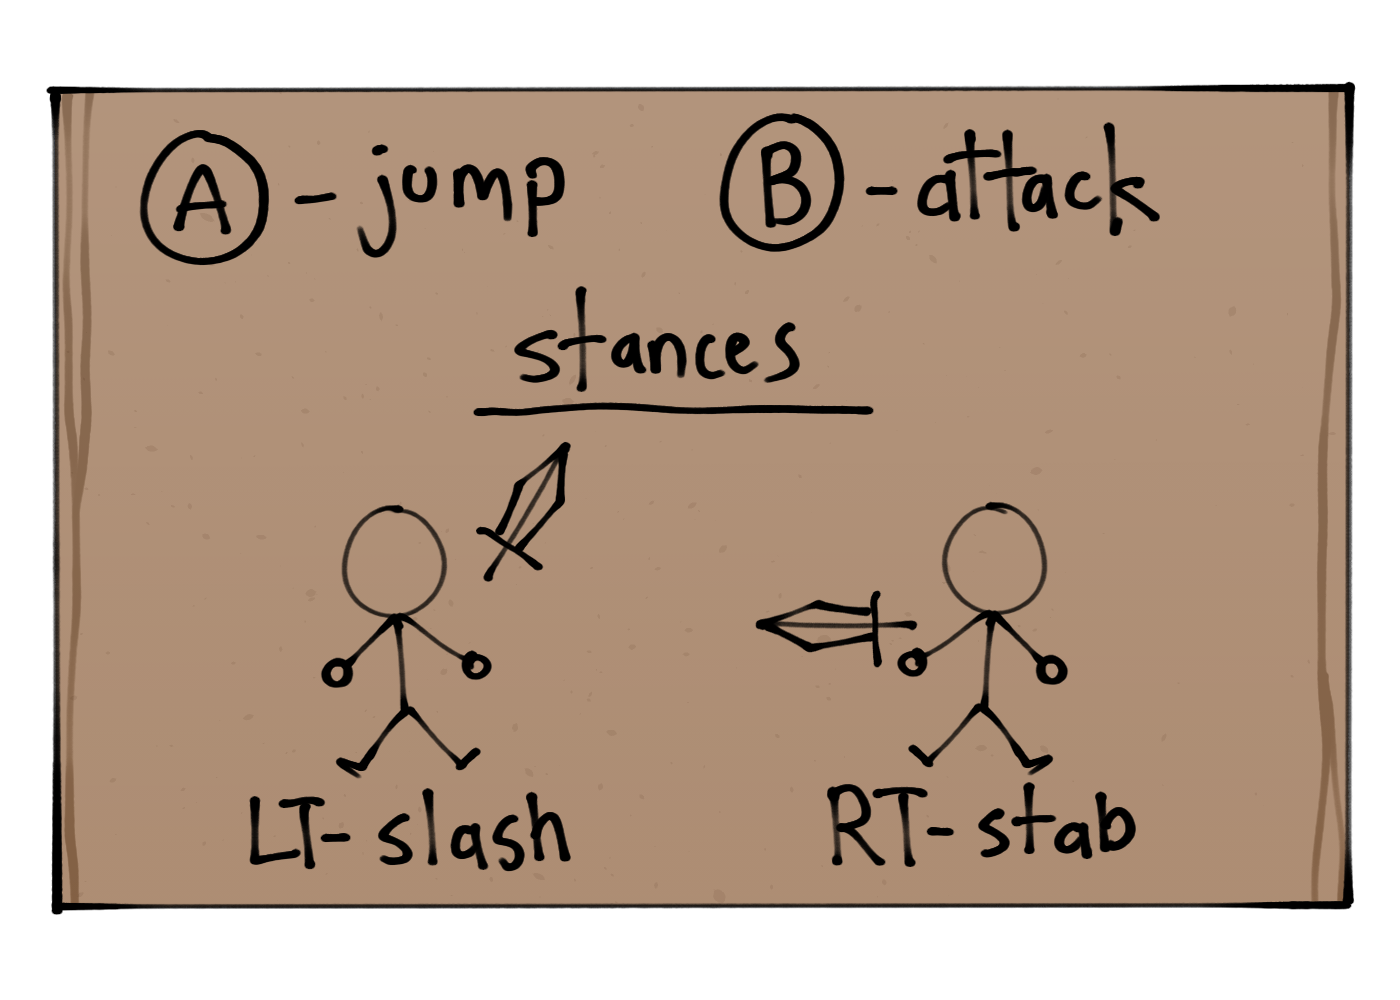 A - jump B - attack
stances
LT - slash RT - stab